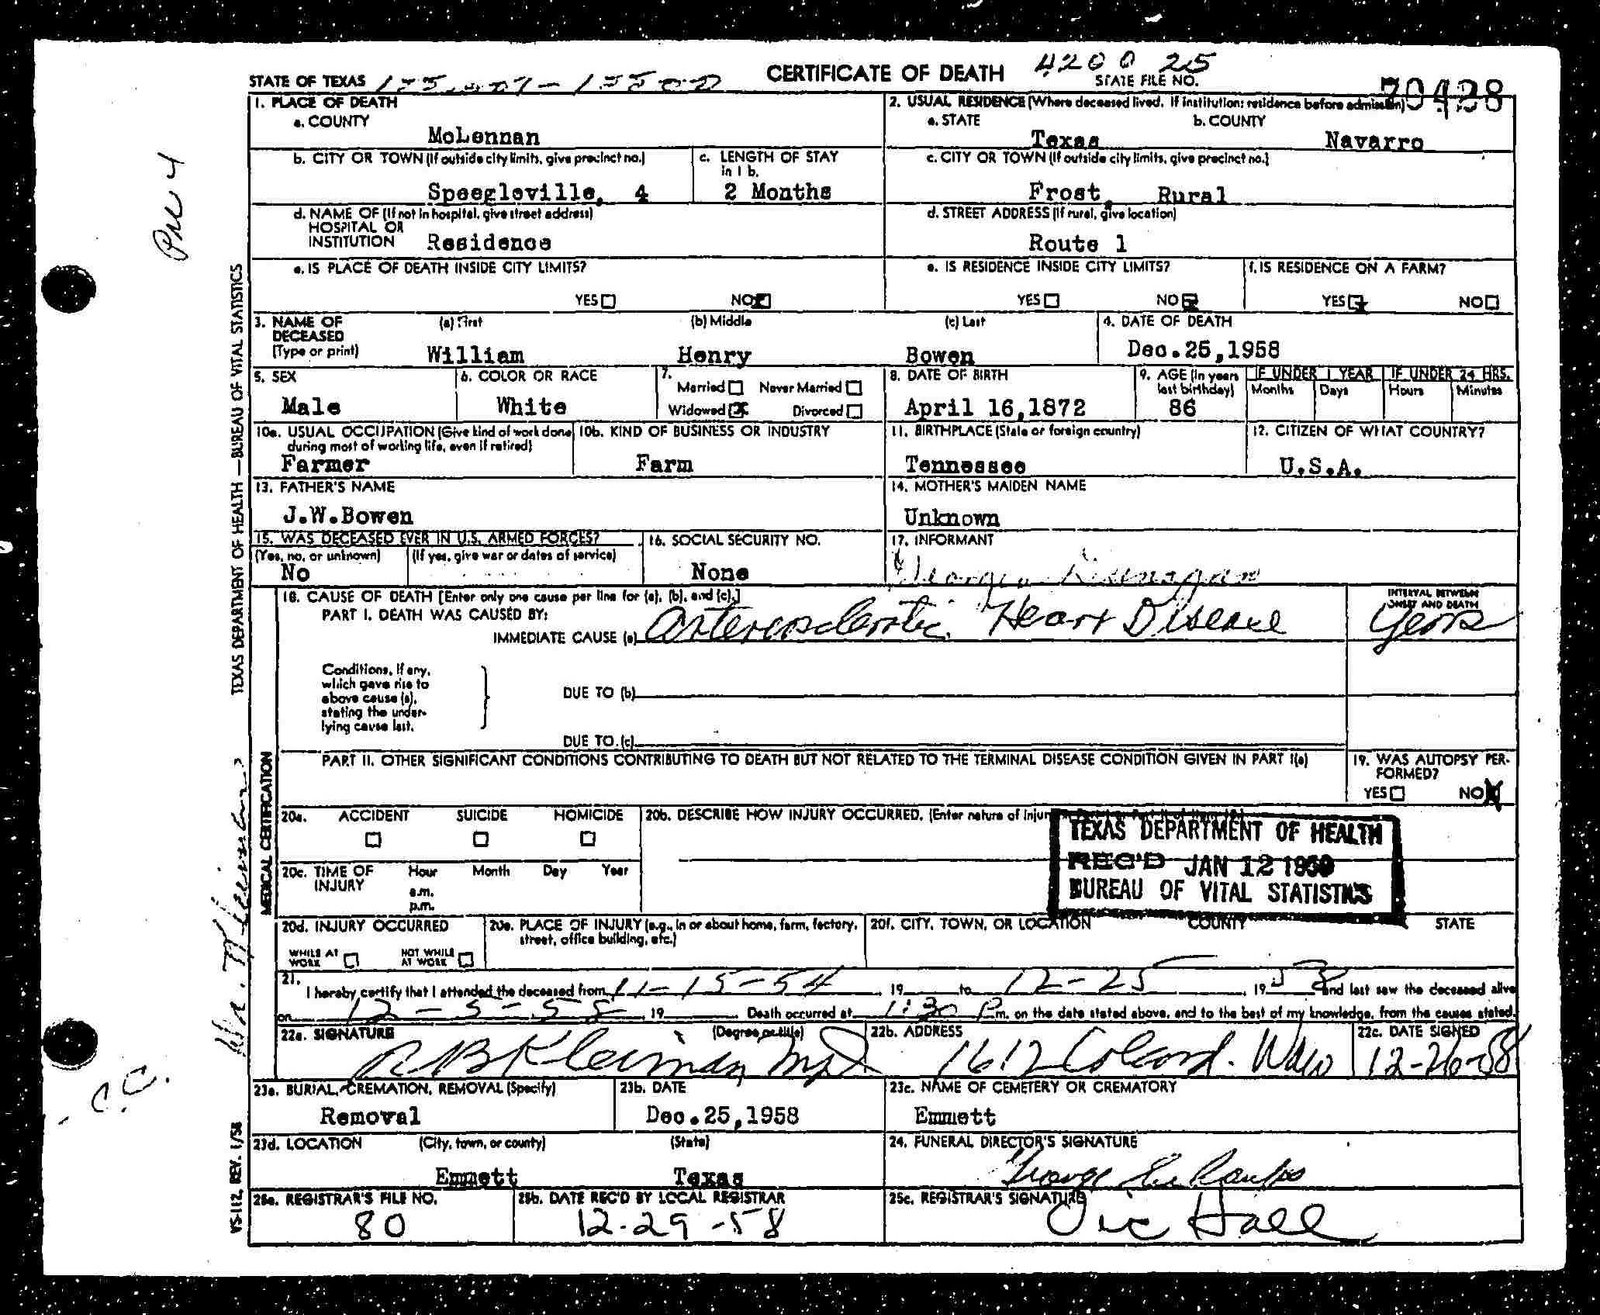 CERTIFICATE OF DEATH 4200 25
STATE OF TEXAS STATE FILE NO. 70428
1. PLACE OF DEATH
a. COUNTY
McLennan
2. USUAL RESIDENCE (Where deceased lived. If institution: residence before admission)
a. STATE b. COUNTY
Texas Navarro
b. CITY OR TOWN (If outside city limits, give precinct no.)
Speegleville, 4
c. LENGTH OF STAY in 1 b.
2 Months
c. CITY OR TOWN (If outside city limits, give precinct no.)
Frost, Rural
d. NAME OF (If not in hospital, give street address)
HOSPITAL OR
INSTITUTION Residence
d. STREET ADDRESS (If rural, give location)
Route 1
e. IS PLACE OF DEATH INSIDE CITY LIMITS?
YES NO
e. IS RESIDENCE INSIDE CITY LIMITS?
YES NO
f. IS RESIDENCE ON A FARM?
YES NO
3. NAME OF DECEASED (Type or print)
(a) First (b) Middle (c) Last
William Henry Bowen
4. DATE OF DEATH
Dec. 25, 1958
5. SEX
Male
6. COLOR OR RACE
White
7. Married Never Married
Widowed Divorced
8. DATE OF BIRTH
April 16, 1872
9. AGE (In years last birthday)
86
IF UNDER 1 YEAR IF UNDER 24 HRS.
Months Days Hours Minutes
10a. USUAL OCCUPATION (Give kind of work done during most of working life, even if retired)
Farmer
10b. KIND OF BUSINESS OR INDUSTRY
Farm
11. BIRTHPLACE (State or foreign country)
Tennessee
12. CITIZEN OF WHAT COUNTRY?
U.S.A.
13. FATHER'S NAME
J.W.Bowen
14. MOTHER'S MAIDEN NAME
Unknown
15. WAS DECEASED EVER IN U.S. ARMED FORCES?
(Yes, no, or unknown) (If yes, give war or dates of service)
No
16. SOCIAL SECURITY NO.
None
17. INFORMANT
18. CAUSE OF DEATH [Enter only one cause per line for (a), (b), and (c).]
PART I. DEATH WAS CAUSED BY:
IMMEDIATE CAUSE (a) Arteriosclerotic Heart Disease
INTERVAL BETWEEN ONSET AND DEATH
Years
Conditions, if any,
which gave rise to
above cause (a),
stating the under-
lying cause last.
DUE TO (b)
DUE TO (c)
PART II. OTHER SIGNIFICANT CONDITIONS CONTRIBUTING TO DEATH BUT NOT RELATED TO THE TERMINAL DISEASE CONDITION GIVEN IN PART I(a)
19. WAS AUTOPSY PER-
FORMED?
YES NO
20a. ACCIDENT SUICIDE HOMICIDE
20b. DESCRIBE HOW INJURY OCCURRED. (Enter nature of injury
TEXAS DEPARTMENT OF HEALTH
REC'D JAN 12 1959
BUREAU OF VITAL STATISTICS
20c. TIME OF INJURY Hour Month Day Year
a.m.
p.m.
20d. INJURY OCCURRED
WHILE AT WORK NOT WHILE AT WORK
20e. PLACE OF INJURY (e.g., in or about home, farm, factory, street, office building, etc.)
20f. CITY, TOWN, OR LOCATION COUNTY STATE
21. I hereby certify that I attended the deceased from 11-15-54, 19 to 12-25, 1958 and last saw the deceased alive
on 12-5-58, 19 Death occurred at 1:30 P.m. on the date stated above, and to the best of my knowledge, from the causes stated.
22a. SIGNATURE (Degree or title)
RB Kleiman MD
22b. ADDRESS
1612 Colcord. Waco
22c. DATE SIGNED
12-26-58
23a. BURIAL, CREMATION, REMOVAL (Specify)
Removal
23b. DATE
Dec. 25, 1958
23c. NAME OF CEMETERY OR CREMATORY
Emmett
23d. LOCATION (City, town, or county) (State)
Emmett Texas
24. FUNERAL DIRECTOR'S SIGNATURE
25a. REGISTRAR'S FILE NO.
80
25b. DATE REC'D BY LOCAL REGISTRAR
12-29-58
25c. REGISTRAR'S SIGNATURE
Vic Hall
TEXAS DEPARTMENT OF HEALTH—BUREAU OF VITAL STATISTICS
MEDICAL CERTIFICATION
VS-112, REV. 1/58
c.c.